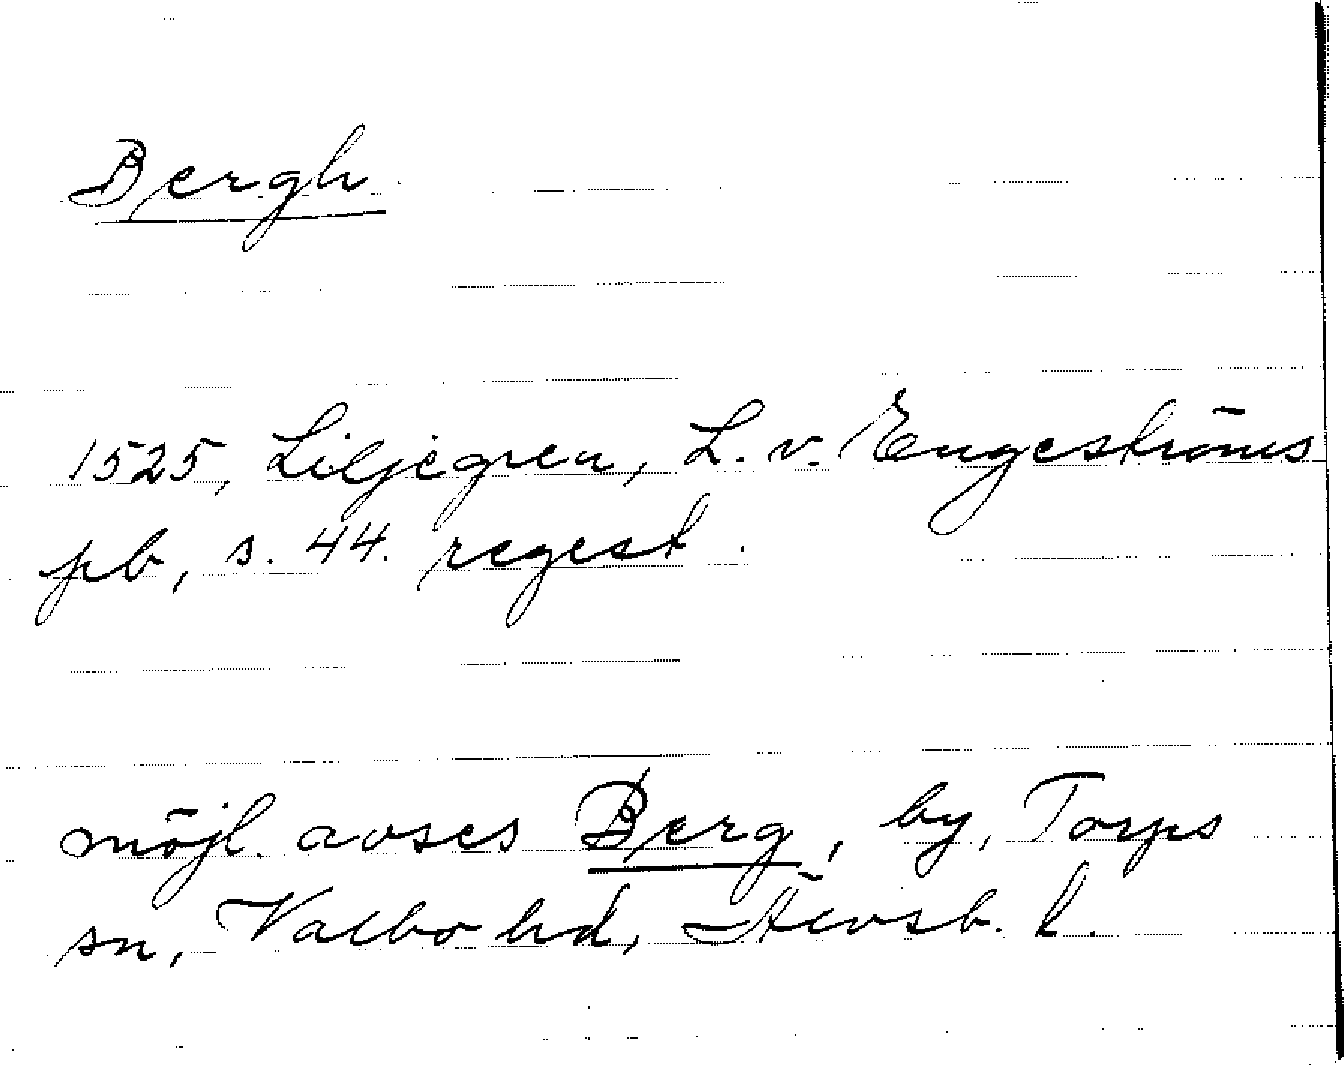 Bergh
1525, Liljegren, L. v. Engeströms
pb, s. 44. regest.
möjl. avses Berg, by, Torps
sn, Valbo hd, Älvsb. l.